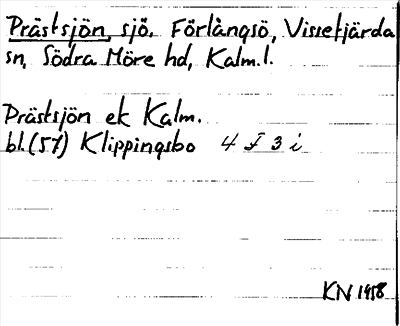 Prästsjön, sjö. Förlångsö, Vissefjärda
sn, Södra Möre hd, Kalm.l.
Prästsjön ek Kalm.
bl.(57) Klippingsbo 4 F 3 i
KN 1958